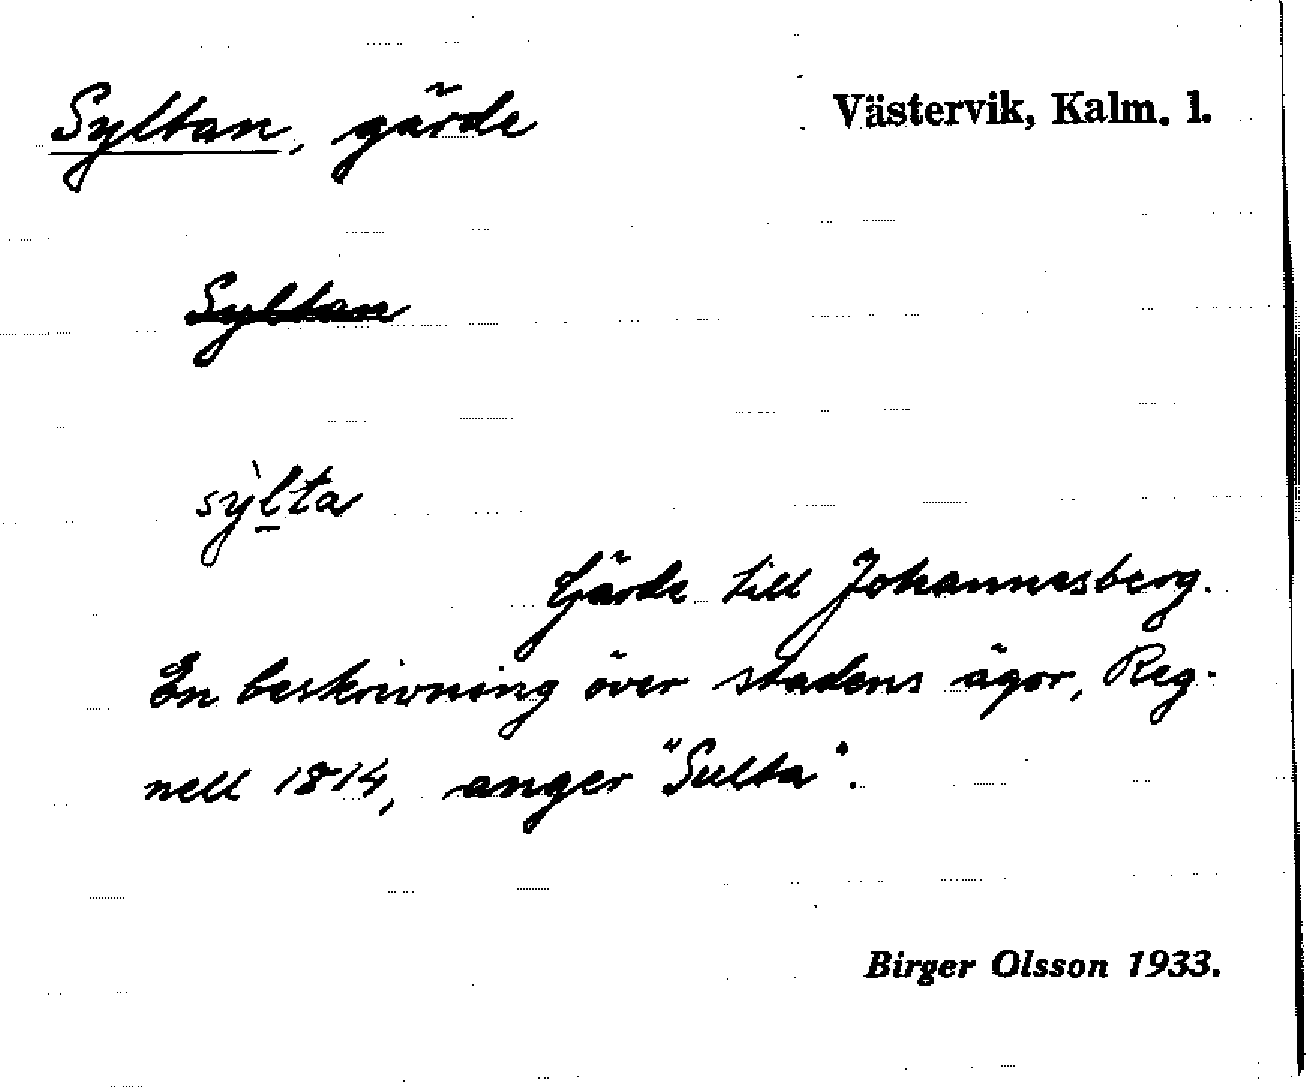 Syltan, gärde
Västervik, Kalm. l.
Syltan
sỳl̲ta
Gärde till Johannesberg.
En beskrivning över stadens ägor, Reg-
nell 1814, anger "Sulta".
Birger Olsson 1933.